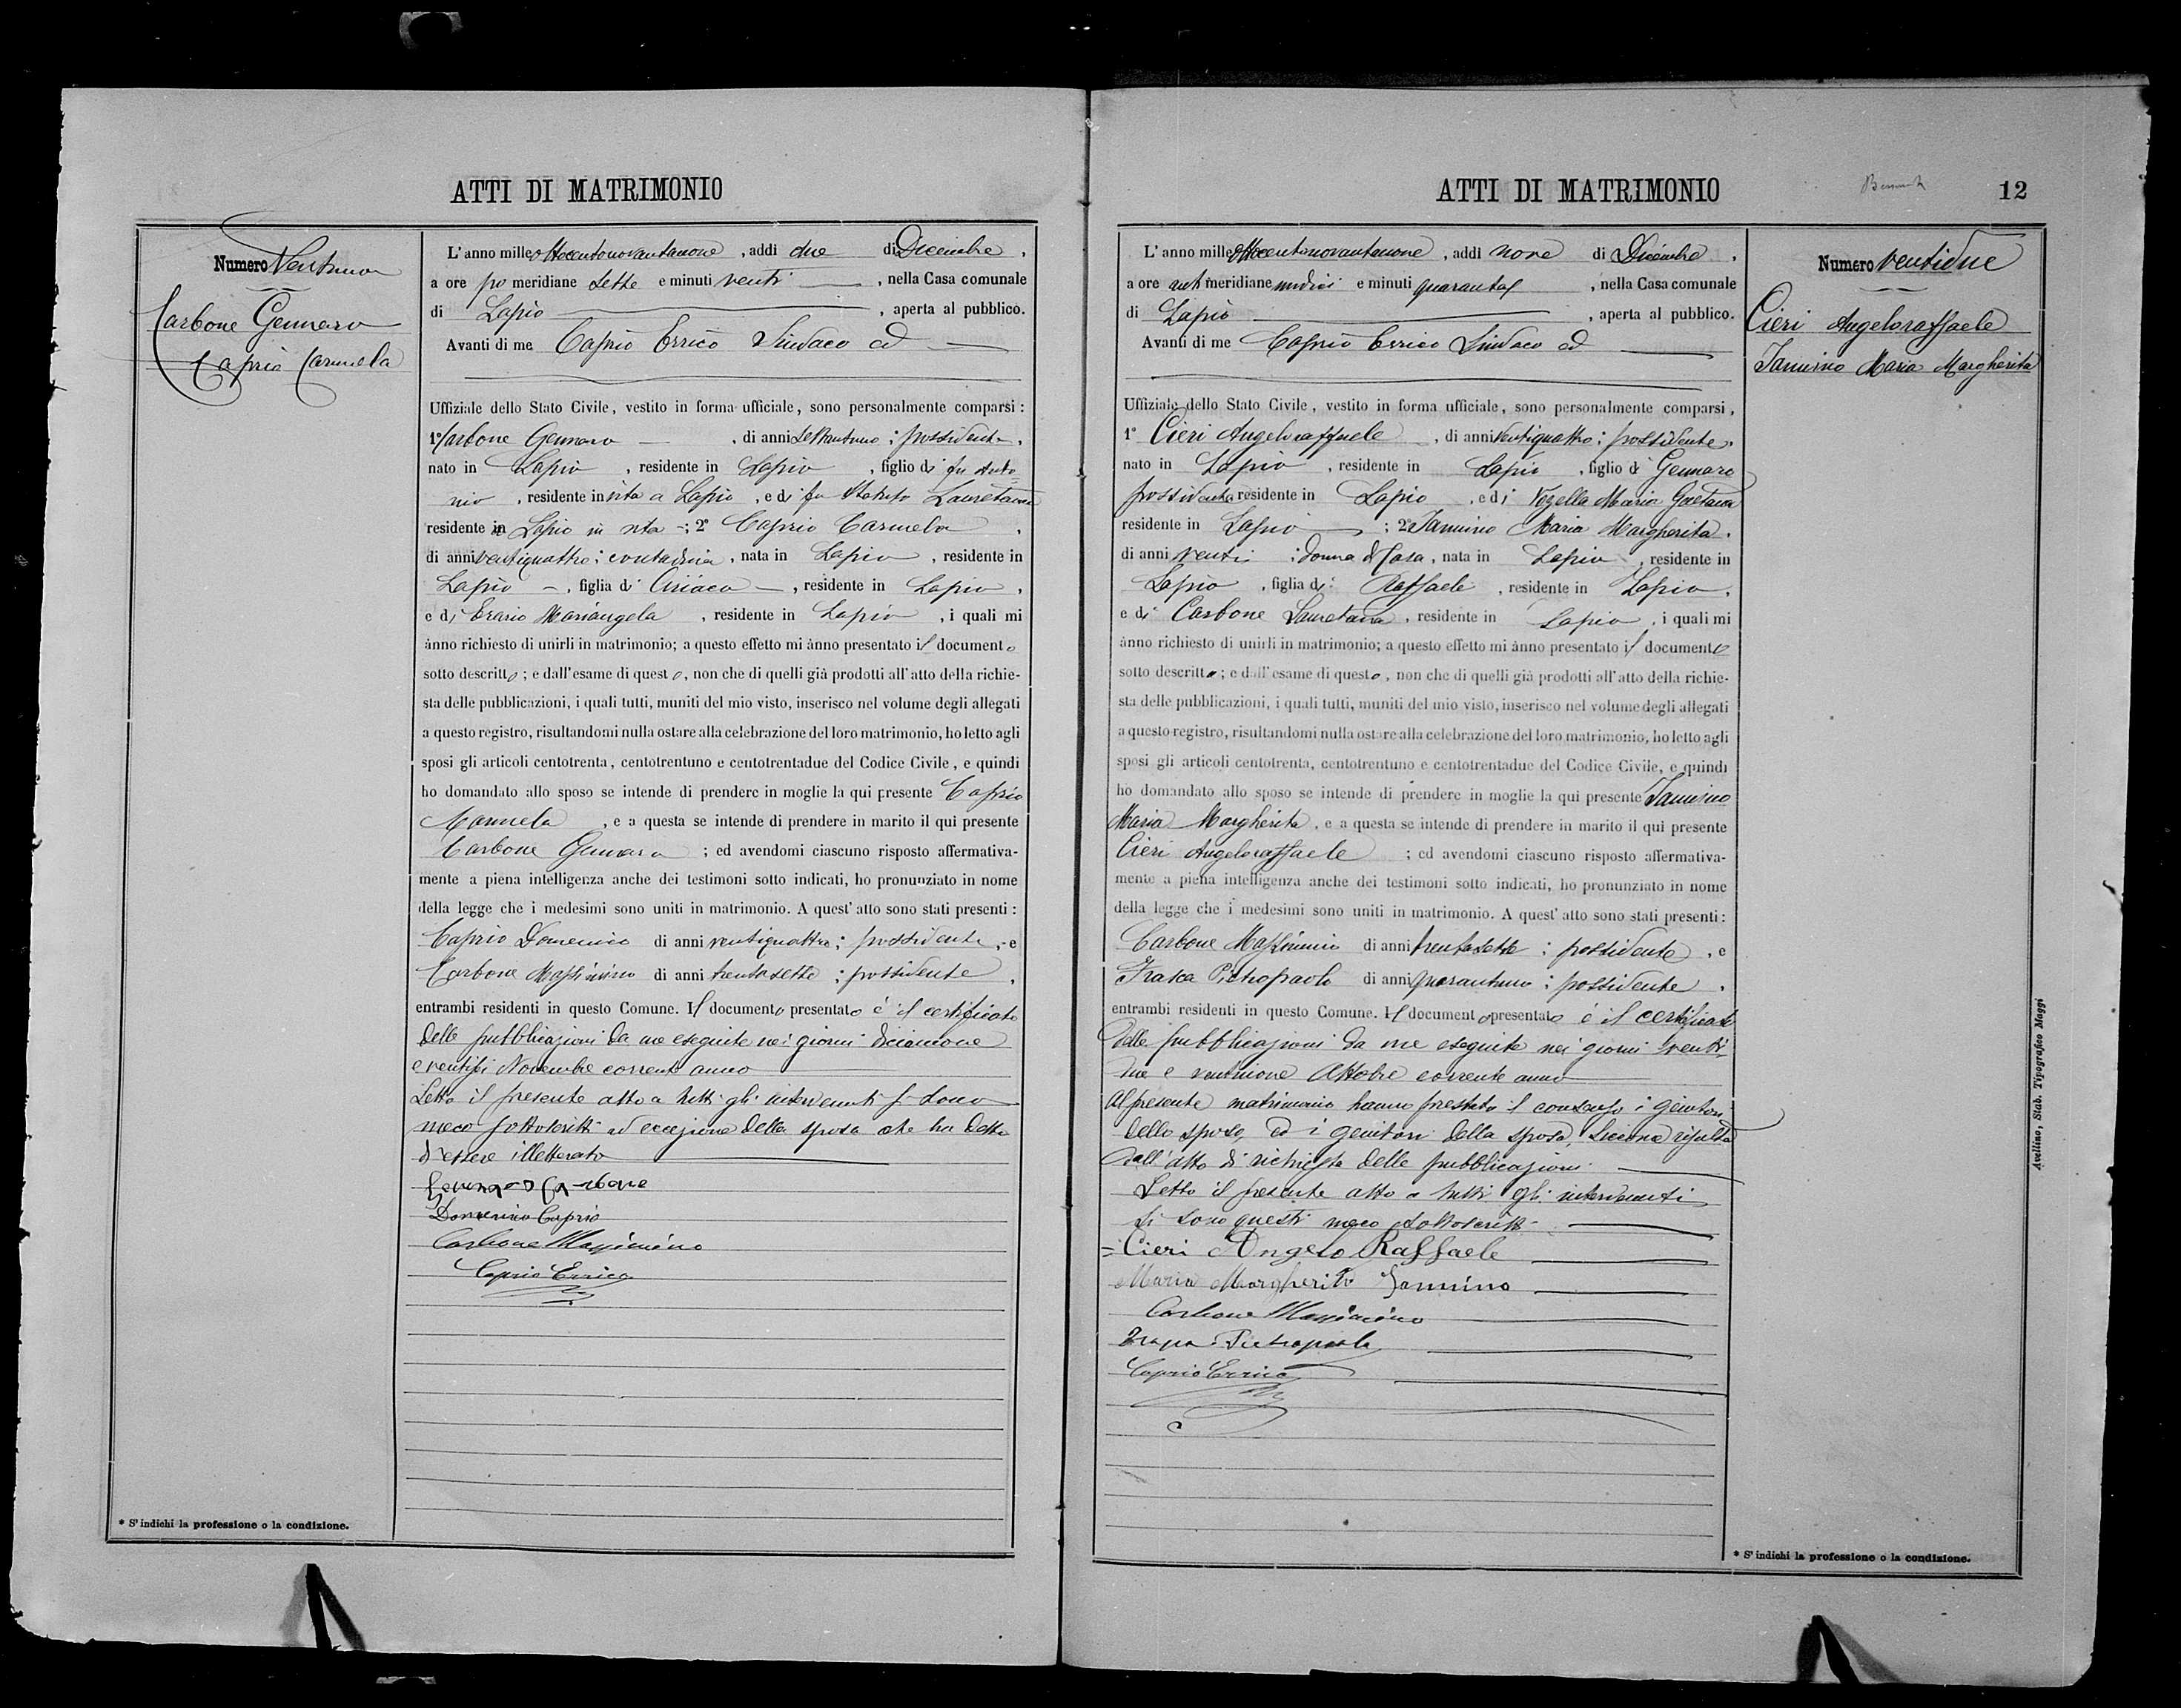 ATTI DI MATRIMONIO
Numero Ventuno
Carbone Gennaro
Caprio Carmela
L'anno mille ottocentonovantanove, addì due di Dicembre,
a ore pomeridiane sette e minuti venti, nella Casa comunale
di Lapio, aperta al pubblico.
Avanti di me Caprio Errico Sindaco ed
Uffiziale dello Stato Civile, vestito in forma ufficiale, sono personalmente comparsi:
1° Carbone Gennaro, di anni settantuno; possidente,
nato in Lapio, residente in Lapio, figlio di fu Anto=
nio, residente in vita a Lapio, e di fu Lauretana
residente in Lapio in vita; 2° Caprio Carmela,
di anni ventiquattro; contadina, nata in Lapio, residente in
Lapio, figlia di Ciriaco, residente in Lapio,
e di Erario Mariangela, residente in Lapio, i quali mi
ànno richiesto di unirli in matrimonio; a questo effetto mi ànno presentato il documento
sotto descritto; e dall'esame di questo, non che di quelli già prodotti all'atto della richie-
sta delle pubblicazioni, i quali tutti, muniti del mio visto, inserisco nel volume degli allegati
a questo registro, risultandomi nulla ostare alla celebrazione del loro matrimonio, ho letto agli
sposi gli articoli centotrenta, centotrentuno e centotrentadue del Codice Civile, e quindi
ho domandato allo sposo se intende di prendere in moglie la qui presente Caprio
Carmela, e a questa se intende di prendere in marito il qui presente
Carbone Gennaro; ed avendomi ciascuno risposto affermativa-
mente a piena intelligenza anche dei testimoni sotto indicati, ho pronunziato in nome
della legge che i medesimi sono uniti in matrimonio. A quest'atto sono stati presenti:
Caprio Domenico di anni ventiquattro; possidente, e
Carbone Massimino di anni trentasette; possidente,
entrambi residenti in questo Comune. Il documento presentato è il certificato
delle pubblicazioni da me eseguite nei giorni diciannove
e ventisei Novembre corrente anno
Letto il presente atto a tutti gli intervenuti si sono
meco sottoscritti ad eccezione della sposa che ha detto
d'essere illetterata
Gennaro Carbone
Domenico Caprio
Carbone Massimino
Caprio Errico
* S'indichi la professione o la condizione.
ATTI DI MATRIMONIO
12
Numero ventidue
Cieri Angeloraffaele
Iannino Maria Margherita
L'anno mille ottocentonovantanove, addì nove di Dicembre,
a ore antimeridiane undici e minuti quaranta, nella Casa comunale
di Lapio, aperta al pubblico.
Avanti di me Caprio Errico Sindaco ed
Uffiziale dello Stato Civile, vestito in forma ufficiale, sono personalmente comparsi,
1° Cieri Angeloraffaele, di anni ventiquattro; possidente,
nato in Lapio, residente in Lapio, figlio di Gennaro
possidente residente in Lapio, e di Vozella Maria Gaetana
residente in Lapio; 2° Iannino Maria Margherita,
di anni venti; donna di Casa, nata in Lapio, residente in
Lapio, figlia di Raffaele, residente in Lapio,
e di Carbone Lauretana, residente in Lapio, i quali mi
ànno richiesto di unirli in matrimonio; a questo effetto mi ànno presentato il documento
sotto descritto; e dall'esame di questo, non che di quelli già prodotti all'atto della richie-
sta delle pubblicazioni, i quali tutti, muniti del mio visto, inserisco nel volume degli allegati
a questo registro, risultandomi nulla ostare alla celebrazione del loro matrimonio, ho letto agli
sposi gli articoli centotrenta, centotrentuno e centotrentadue del Codice Civile, e quindi
ho domandato allo sposo se intende di prendere in moglie la qui presente Iannino
Maria Margherita, e a questa se intende di prendere in marito il qui presente
Cieri Angeloraffaele; ed avendomi ciascuno risposto affermativa-
mente a piena intelligenza anche dei testimoni sotto indicati, ho pronunziato in nome
della legge che i medesimi sono uniti in matrimonio. A quest'atto sono stati presenti:
Carbone Massimino di anni trentasette; possidente, e
Frasca Pietropaolo di anni quarantuno; possidente,
entrambi residenti in questo Comune. Il documento presentato è il certificato
delle pubblicazioni da me eseguite nei giorni venti-
due e ventinove Ottobre corrente anno
Al presente matrimonio hanno prestato il consenso i genitori
dello sposo, ed i genitori della sposa, siccome risulta
dall'atto di richiesta delle pubblicazioni.
Letto il presente atto a tutti gli intervenuti
si sono questi meco sottoscritti
=Cieri Angelo Raffaele
Maria Margherita Iannino
Carbone Massimino
Pietropaolo
Caprio Errico
* S'indichi la professione o la condizione.
Avellino, Stab. Tipografico Maggi